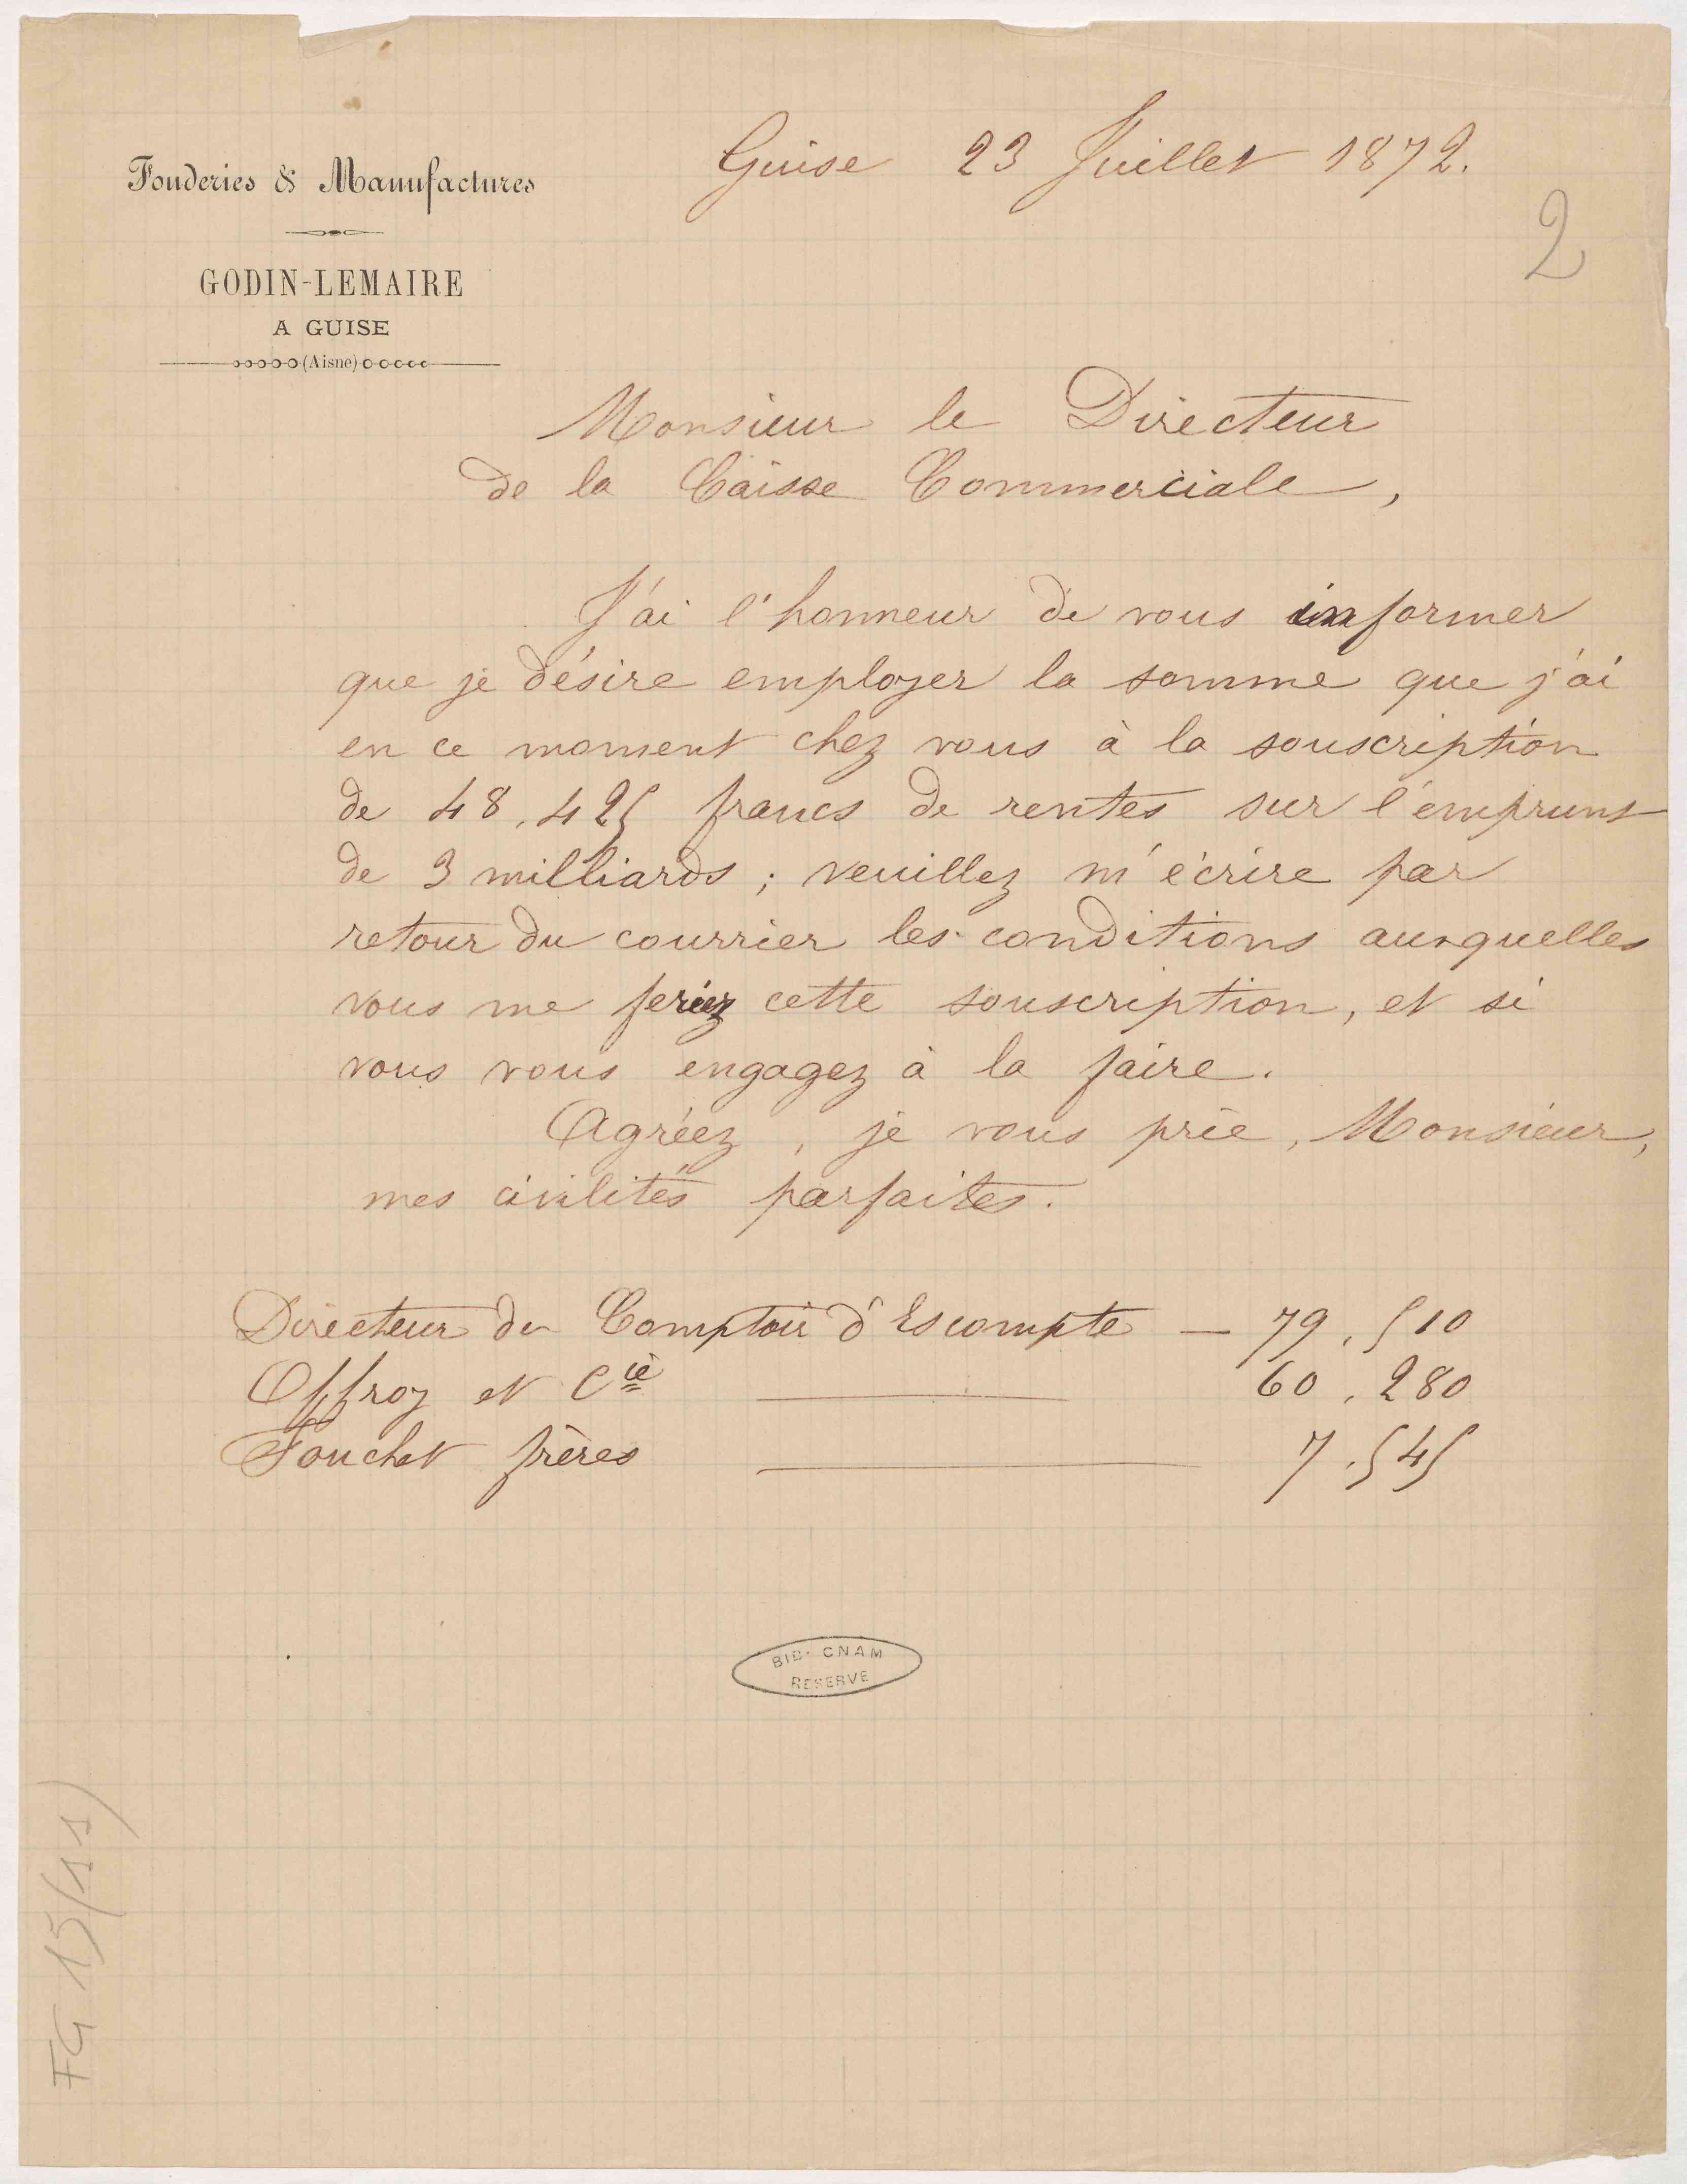 Fonderies & Manufactures
GODIN-LEMAIRE
A GUISE
(Aisne)
Guise 23 Juillet 1872.
2
Monsieur le Directeur
de la Caisse Commerciale,
J'ai l'honneur de vous informer
que je désire employer la somme que j'ai
en ce moment chez vous à la souscription
de 48.425 francs de rentes sur l'emprunt
de 3 milliards ; veuillez m'écrire par
retour du courrier les conditions auxquelles
vous me feriez cette souscription, et si
vous vous engagez à la faire.
Agréez, je vous prie, Monsieur,
mes civilités parfaites.
Directeur du Comptoir d'Escompte — 79.510
Offroy et Cie — 60.280
Fouchet frères — 7.545
BIB. CNAM
RESERVE
FG 15 (11)